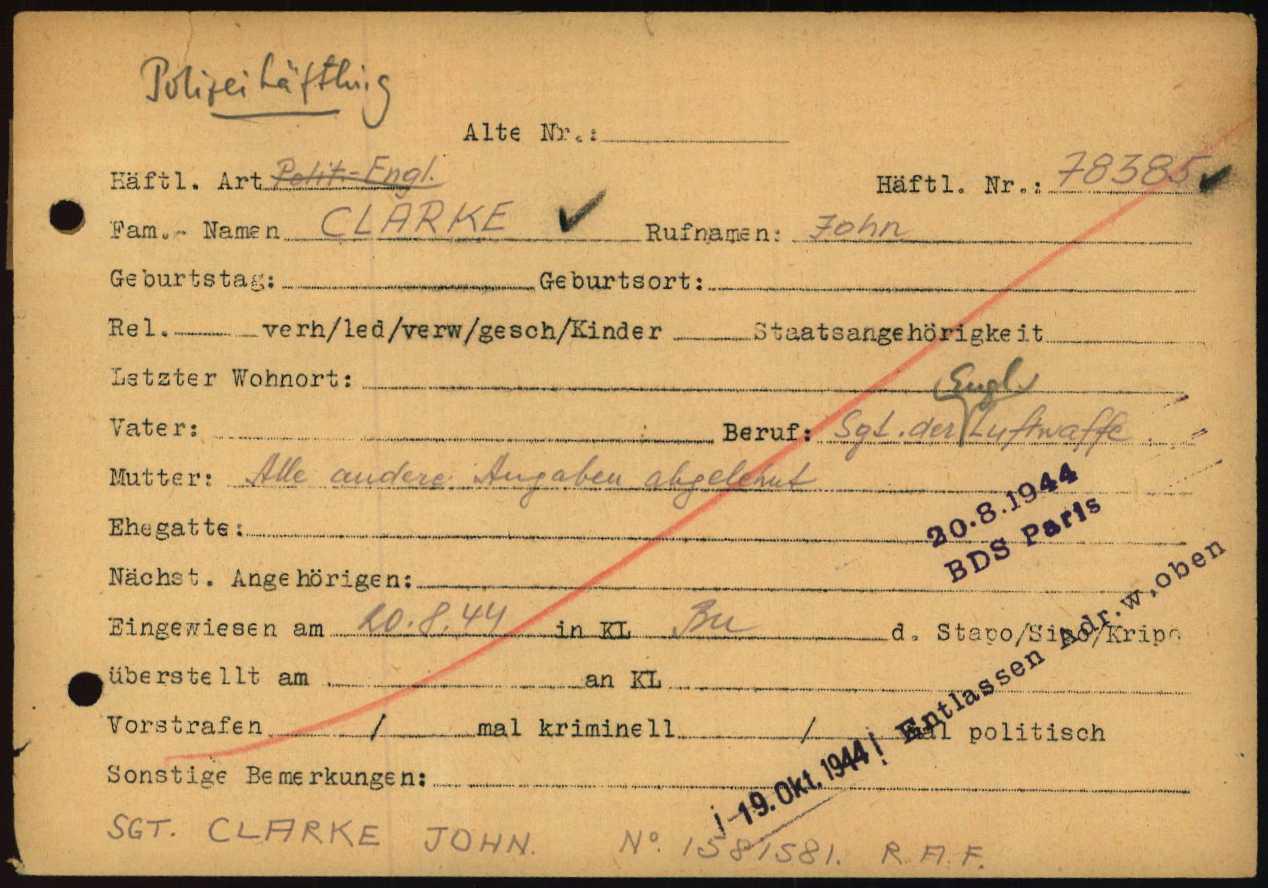 Polizeihäftling
Alte Nr.:
Häftl. Art Polit.-Engl. Häftl. Nr.: 78385
Fam.- Namen CLARKE Rufnamen: John
Geburtstag: Geburtsort:
Rel. verh/led/verw/gesch/Kinder Staatsangehörigkeit
Letzter Wohnort:
Engl.
Vater: Beruf: Sgt. der Luftwaffe
Mutter: Alle andere Angaben abgelehnt
20.8.1944
BDS Paris
Ehegatte:
Nächst. Angehörigen:
Eingewiesen am 20.8.44 in KL Bu d. Stapo/Sipo/Kripo
überstellt am an KL
Vorstrafen / mal kriminell / mal politisch
-19. Okt. 1944 Entlassen Adr.w.oben
Sonstige Bemerkungen:
SGT. CLARKE JOHN. No. 1581581. R.A.F.